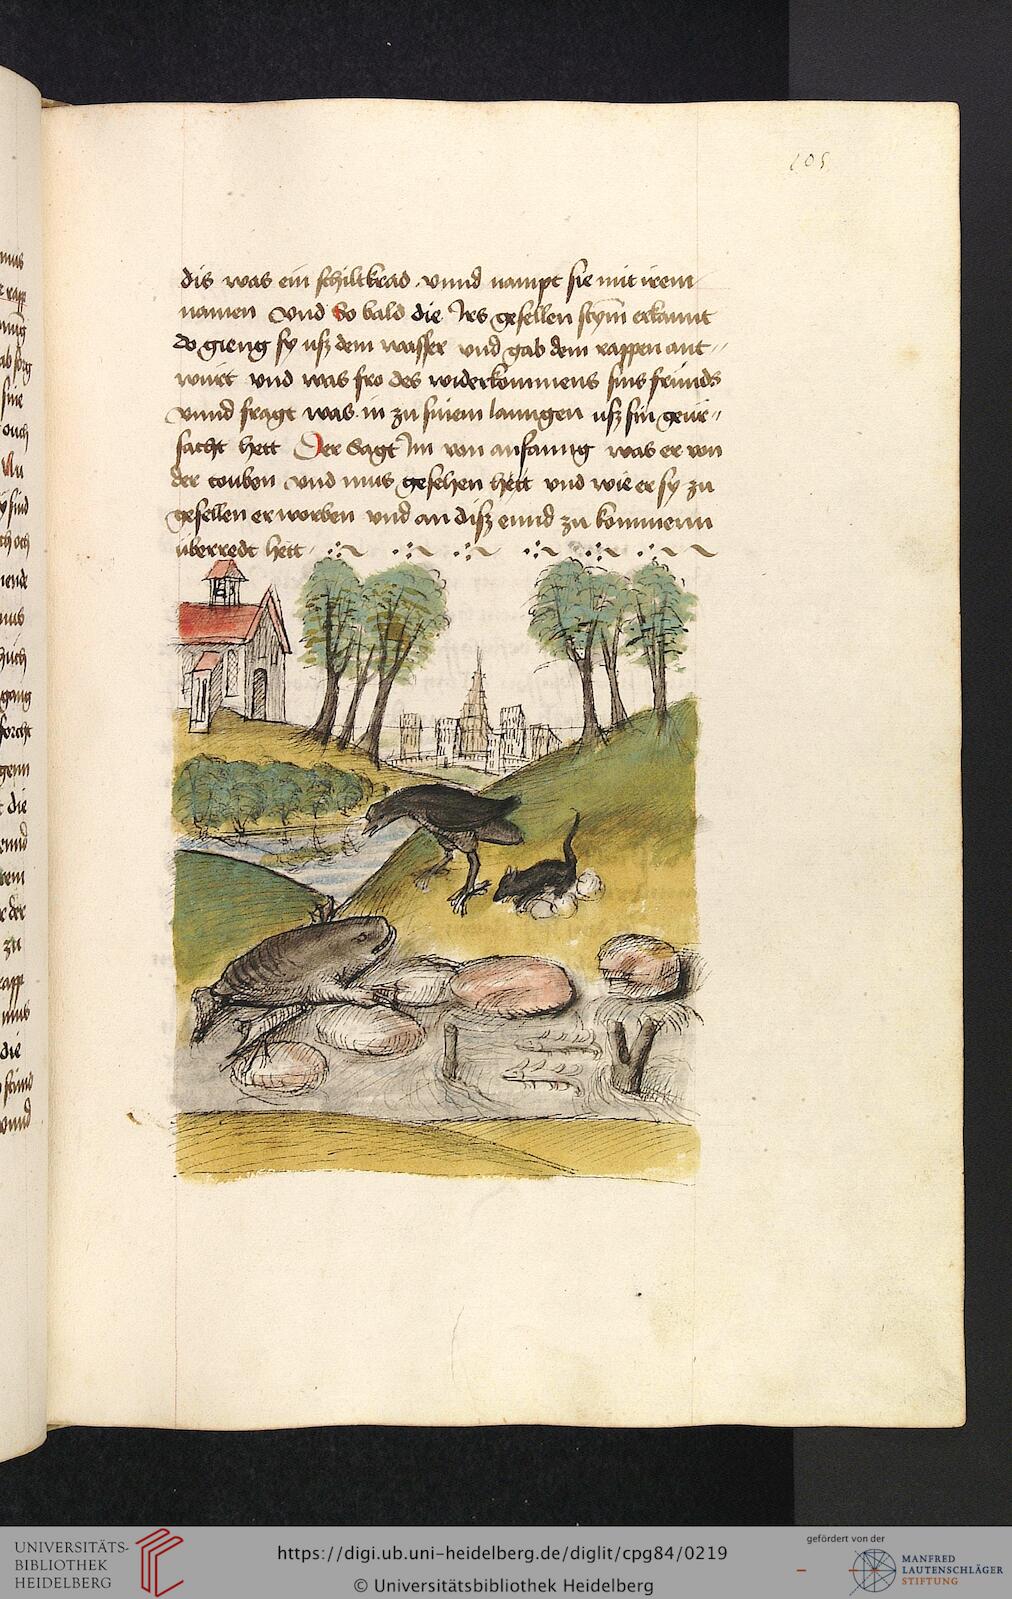 105
dis was ein schiltkrad. vnnd nampt sie mit irem
namen Vnd So bald die Irs gesellen stym erkannt
do gieng sy usz dem wasser vnd gab dem rappen ant〃
wurt vnd was fro des widerkommens sins fründs
vnnd fragt was in zu sinem lanngen usz sin geür〃
sacht hett Der Sagt Im von anfanng was er von
der touben vnd mus gesehen hett vnd wie er sy zu
gesellen erworben vnd an disz ennd zu kommenn
überredt hett
mus
rapp
ouch
Nu
sind
mus
gang
die
vnnd
der
zu
rapp
mus
die
vnnd
UNIVERSITÄTS-
BIBLIOTHEK
HEIDELBERG
https://digi.ub.uni-heidelberg.de/diglit/cpg84/0219
© Universitätsbibliothek Heidelberg
gefördert von der
MANFRED
LAUTENSCHLÄGER
STIFTUNG